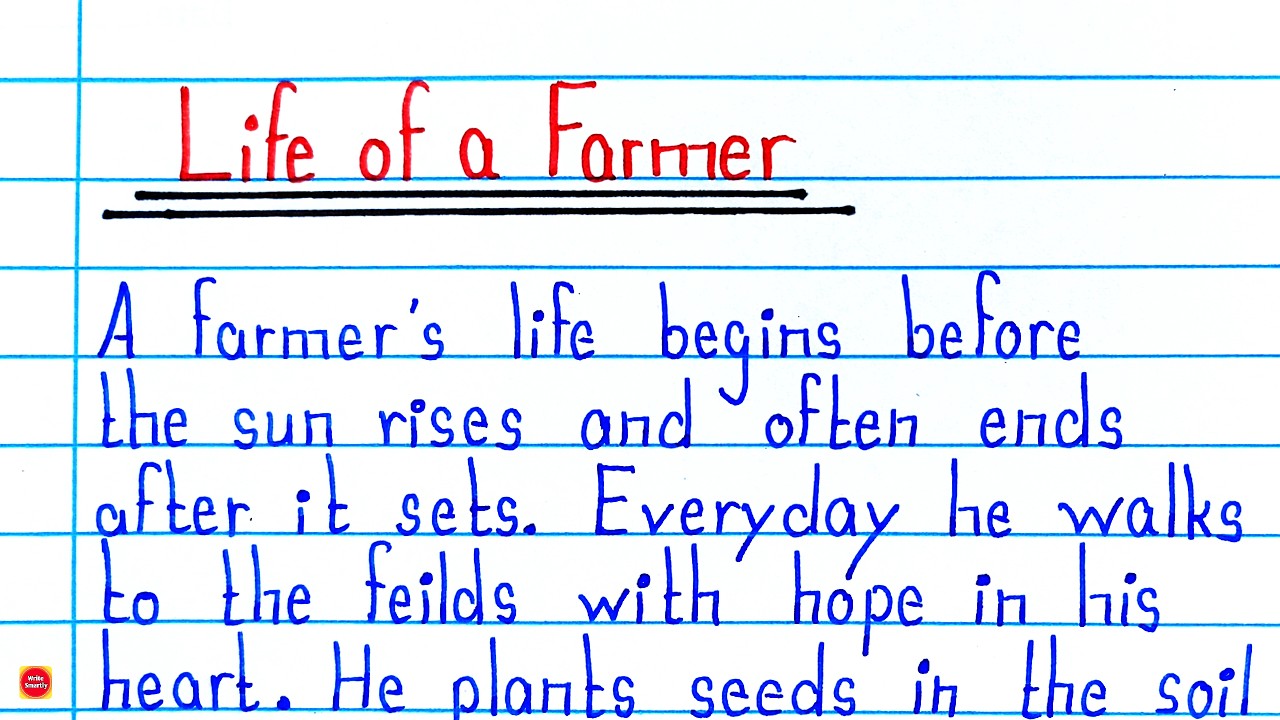 Life of a Farmer
A farmer's life begins before
the sun rises and often ends
after it sets. Everyday he walks
to the feilds with hope in his
heart. He plants seeds in the soil
Write
Smartly